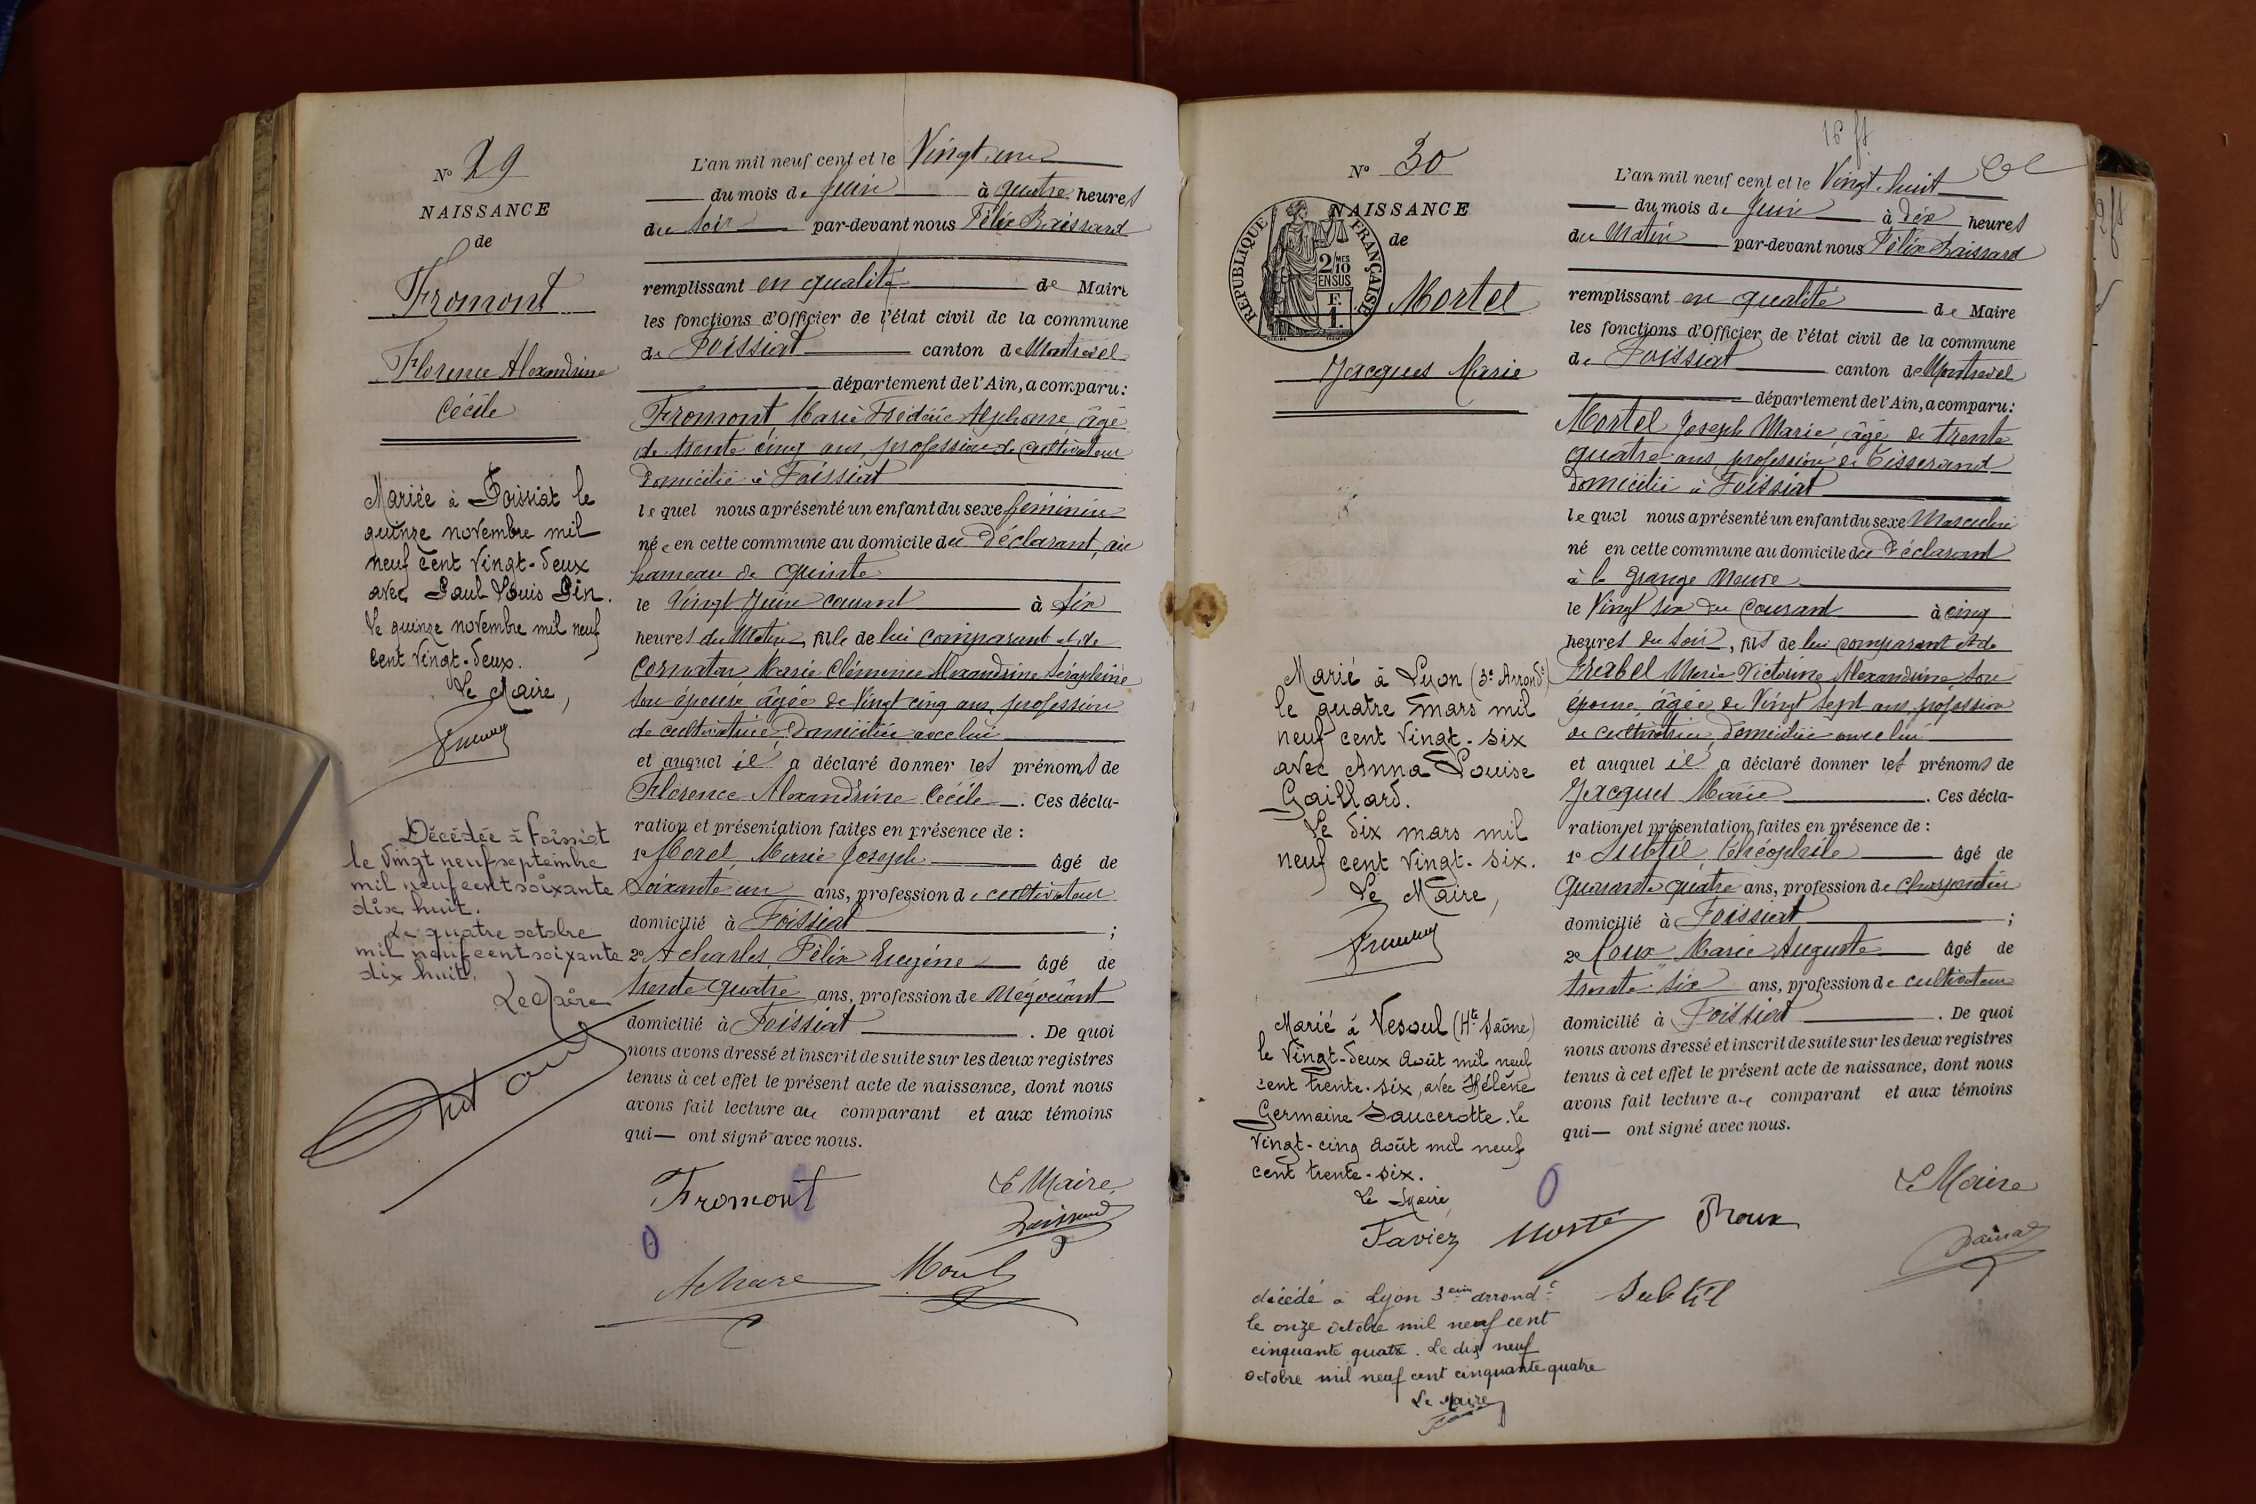 N° 29
NAISSANCE
de
Fromont
Florence Alexandrine
Cécile
Mariée à Foissiat le
quinze novembre mil
neuf cent vingt-deux
avec Paul Louis Pin.
Le quinze novembre mil neuf
cent vingt-deux.
Le Maire,
Décédée à Foissiat
le vingt neuf septembre
mil neuf cent soixante
dix huit.
Le quatre octobre
mil neuf cent soixante
dix huit.
Le Maire
L'an mil neuf cent et le Vingt un
du mois de Juin à quatre heures
du soir par-devant nous Félix Baissard
remplissant en qualité de Maire
les fonctions d'Officier de l'état civil de la commune
de Foissiat canton de Montrevel
département de l'Ain, a comparu:
Fromont Marie Frédéric Alphonse, âgé
de trente cinq ans, profession de cultivateur
domicilié à Foissiat
lequel nous a présenté un enfant du sexe féminin
née en cette commune au domicile du Déclarant, au
hameau de Quinte
le Vingt Juin courant à six
heures du Matin, fille de lui comparant et de
Cornaton Marie Clémence Alexandrine Séraphine
son épouse âgée de Vingt cinq ans, profession
de cultivatrice Domiciliée avec lui
et auquel il a déclaré donner les prénoms de
Florence Alexandrine Cécile. Ces décla-
ration et présentation faites en présence de :
1° Morel Marie Joseph âgé de
Soixante un ans, profession de cultivateur
domicilié à Foissiat ;
2° Acharles Félix Eugène âgé de
trente quatre ans, profession de Négociant
domicilié à Foissiat. De quoi
nous avons dressé et inscrit de suite sur les deux registres
tenus à cet effet le présent acte de naissance, dont nous
avons fait lecture au comparant et aux témoins
qui — ont signé avec nous.
Fromont
Le Maire,
Baissard
Morel
N° 30
NAISSANCE
de
RÉPUBLIQUE FRANÇAISE
2/10 MES
EN SUS
F.
1.
Mortel
Jacques Marie
Marié à Lyon (3e Arrondt)
le quatre mars mil
neuf cent vingt-six
avec Anna Louise
Gaillard.
Le dix mars mil
neuf cent vingt-six.
Le Maire,
Marié à Vesoul (Hte Saône)
le vingt-deux août mil neuf
cent trente-six, avec Hélène
Germaine Saucerotte. Le
vingt-cinq août mil neuf
cent trente-six.
Le Maire,
Favier
décédé à Lyon 3eme arrondt
le onze octobre mil neuf cent
cinquante quatre. Le dix neuf
octobre mil neuf cent cinquante quatre
Le Maire
16 ft
L'an mil neuf cent et le Vingt huit
du mois de Juin à dix heures
du Matin par-devant nous Félix Baissard
remplissant en qualité de Maire
les fonctions d'Officier de l'état civil de la commune
de Foissiat canton de Montrevel
département de l'Ain, a comparu:
Mortel Joseph Marie, âgé de trente
quatre ans profession de Tisserand
domicilié à Foissiat
lequel nous a présenté un enfant du sexe Masculin
né en cette commune au domicile du Déclarant
à la Grange Neuve
le Vingt six du Courant à cinq
heures du Soir, fils de lui comparant et de
Marie Victorine Alexandrine son
épouse, âgée de Vingt sept ans profession
de cultivatrice, domiciliée avec lui
et auquel il a déclaré donner les prénoms de
Jacques Marie. Ces décla-
ration et présentation faites en présence de :
1° Subtil Théophile âgé de
Quarante quatre ans, profession de charpentier
domicilié à Foissiat ;
2° Roux Marie Auguste âgé de
trente six ans, profession de cultivateur
domicilié à Foissiat. De quoi
nous avons dressé et inscrit de suite sur les deux registres
tenus à cet effet le présent acte de naissance, dont nous
avons fait lecture au comparant et aux témoins
qui — ont signé avec nous.
Le Maire
Mortel
Roux
Subtil